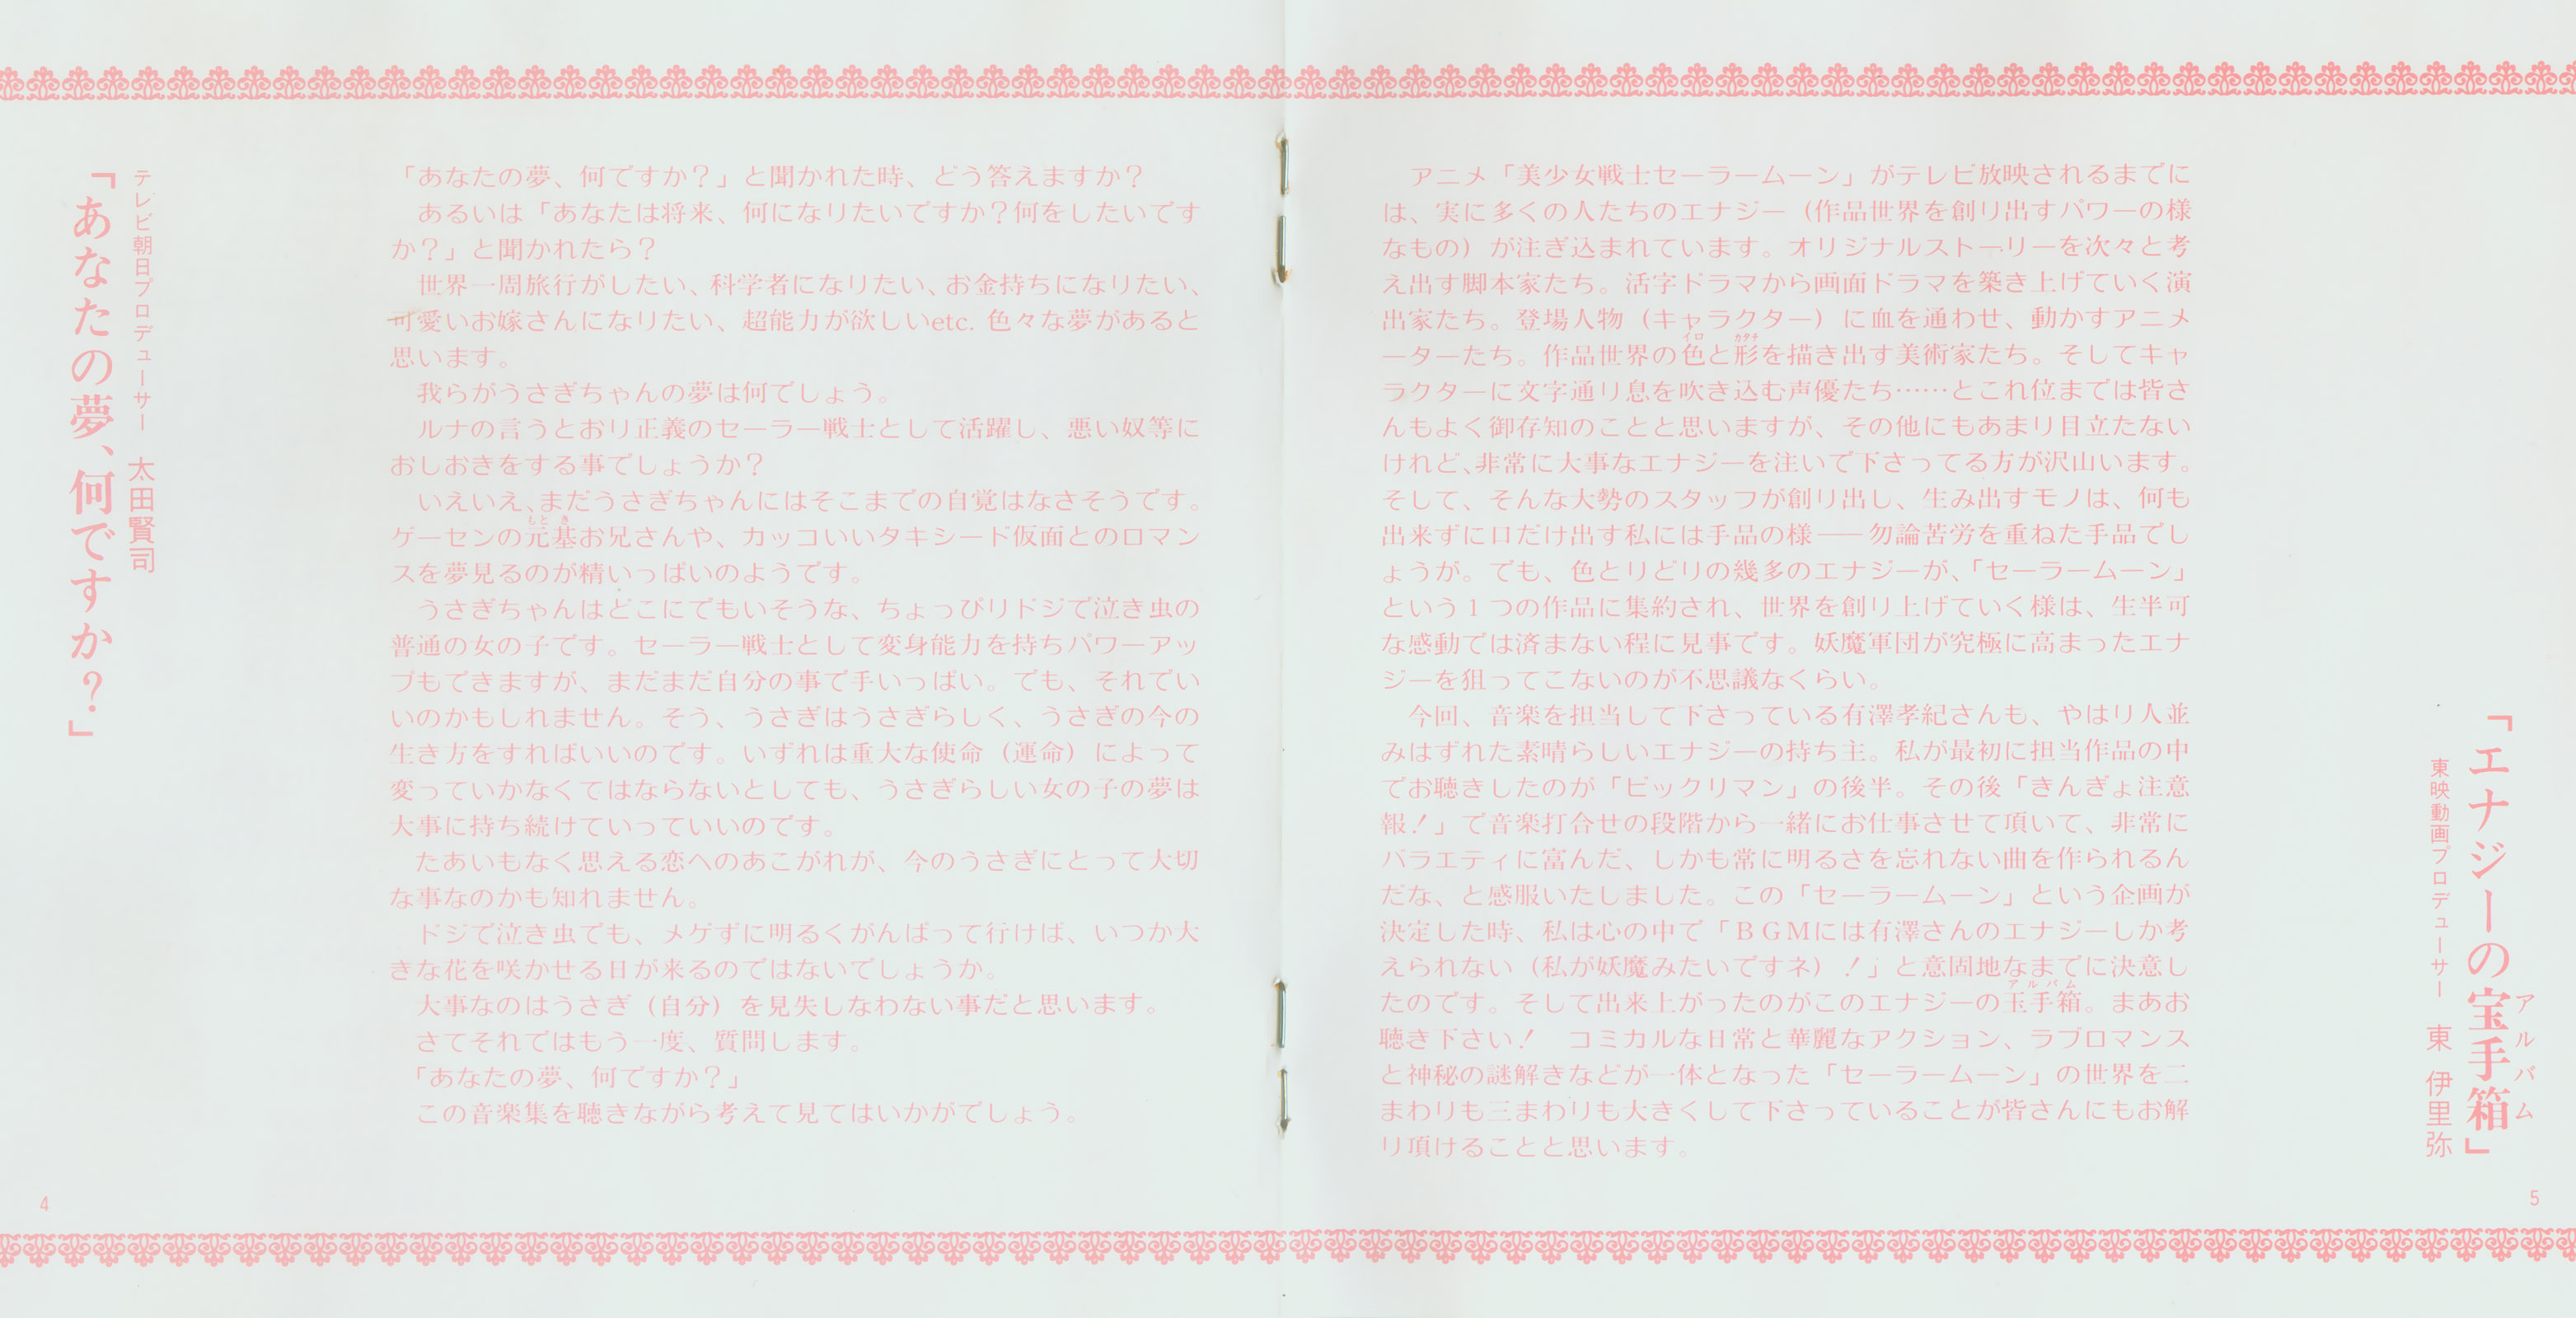 「あなたの夢、何ですか？」
テレビ朝日プロデューサー　太田賢司
「あなたの夢、何ですか？」と聞かれた時、どう答えますか？
あるいは「あなたは将来、何になりたいですか？何をしたいです
か？」と聞かれたら？
世界一周旅行がしたい、科学者になりたい、お金持ちになりたい、
可愛いお嫁さんになりたい、超能力が欲しいetc. 色々な夢があると
思います。
我らがうさぎちゃんの夢は何でしょう。
ルナの言うとおり正義のセーラー戦士として活躍し、悪い奴等に
おしおきをする事でしょうか？
いえいえ、まだうさぎちゃんにはそこまでの自覚はなさそうです。
もとき
ゲーセンの元基お兄さんや、カッコいいタキシード仮面とのロマン
スを夢見るのが精いっぱいのようです。
うさぎちゃんはどこにでもいそうな、ちょっぴりドジで泣き虫の
普通の女の子です。セーラー戦士として変身能力を持ちパワーアッ
プもできますが、まだまだ自分の事で手いっぱい。でも、それでい
いのかもしれません。そう、うさぎはうさぎらしく、うさぎの今の
生き方をすればいいのです。いずれは重大な使命（運命）によって
変っていかなくてはならないとしても、うさぎらしい女の子の夢は
大事に持ち続けていっていいのです。
たあいもなく思える恋へのあこがれが、今のうさぎにとって大切
な事なのかも知れません。
ドジで泣き虫でも、メゲずに明るくがんばって行けば、いつか大
きな花を咲かせる日が来るのではないでしょうか。
大事なのはうさぎ（自分）を見失しなわない事だと思います。
さてそれではもう一度、質問します。
「あなたの夢、何ですか？」
この音楽集を聴きながら考えて見てはいかがでしょう。
4
「エナジーの宝手箱」
アルバム
東映動画プロデューサー　東　伊里弥
アニメ「美少女戦士セーラームーン」がテレビ放映されるまでに
は、実に多くの人たちのエナジー（作品世界を創り出すパワーの様
なもの）が注ぎ込まれています。オリジナルストーリーを次々と考
え出す脚本家たち。活字ドラマから画面ドラマを築き上げていく演
出家たち。登場人物（キャラクター）に血を通わせ、動かすアニメ
イロ　カタチ
ーターたち。作品世界の色と形を描き出す美術家たち。そしてキャ
ラクターに文字通り息を吹き込む声優たち……とこれ位までは皆さ
んもよく御存知のことと思いますが、その他にもあまり目立たない
けれど、非常に大事なエナジーを注いで下さってる方が沢山います。
そして、そんな大勢のスタッフが創り出し、生み出すモノは、何も
出来ずに口だけ出す私には手品の様――勿論苦労を重ねた手品でし
ょうが。でも、色とりどりの幾多のエナジーが、「セーラームーン」
という１つの作品に集約され、世界を創り上げていく様は、生半可
な感動では済まない程に見事です。妖魔軍団が究極に高まったエナ
ジーを狙ってこないのが不思議なくらい。
今回、音楽を担当して下さっている有澤孝紀さんも、やはり人並
みはずれた素晴らしいエナジーの持ち主。私が最初に担当作品の中
でお聴きしたのが「ビックリマン」の後半。その後「きんぎょ注意
報！」で音楽打合せの段階から一緒にお仕事させて頂いて、非常に
バラエティに富んだ、しかも常に明るさを忘れない曲を作られるん
だな、と感服いたしました。この「セーラームーン」という企画が
決定した時、私は心の中で「ＢＧＭには有澤さんのエナジーしか考
えられない（私が妖魔みたいですネ）！」と意固地なまでに決意し
アルバム
たのです。そして出来上がったのがこのエナジーの玉手箱。まあお
聴き下さい！　コミカルな日常と華麗なアクション、ラブロマンス
と神秘の謎解きなどが一体となった「セーラームーン」の世界を二
まわりも三まわりも大きくして下さっていることが皆さんにもお解
り頂けることと思います。
5